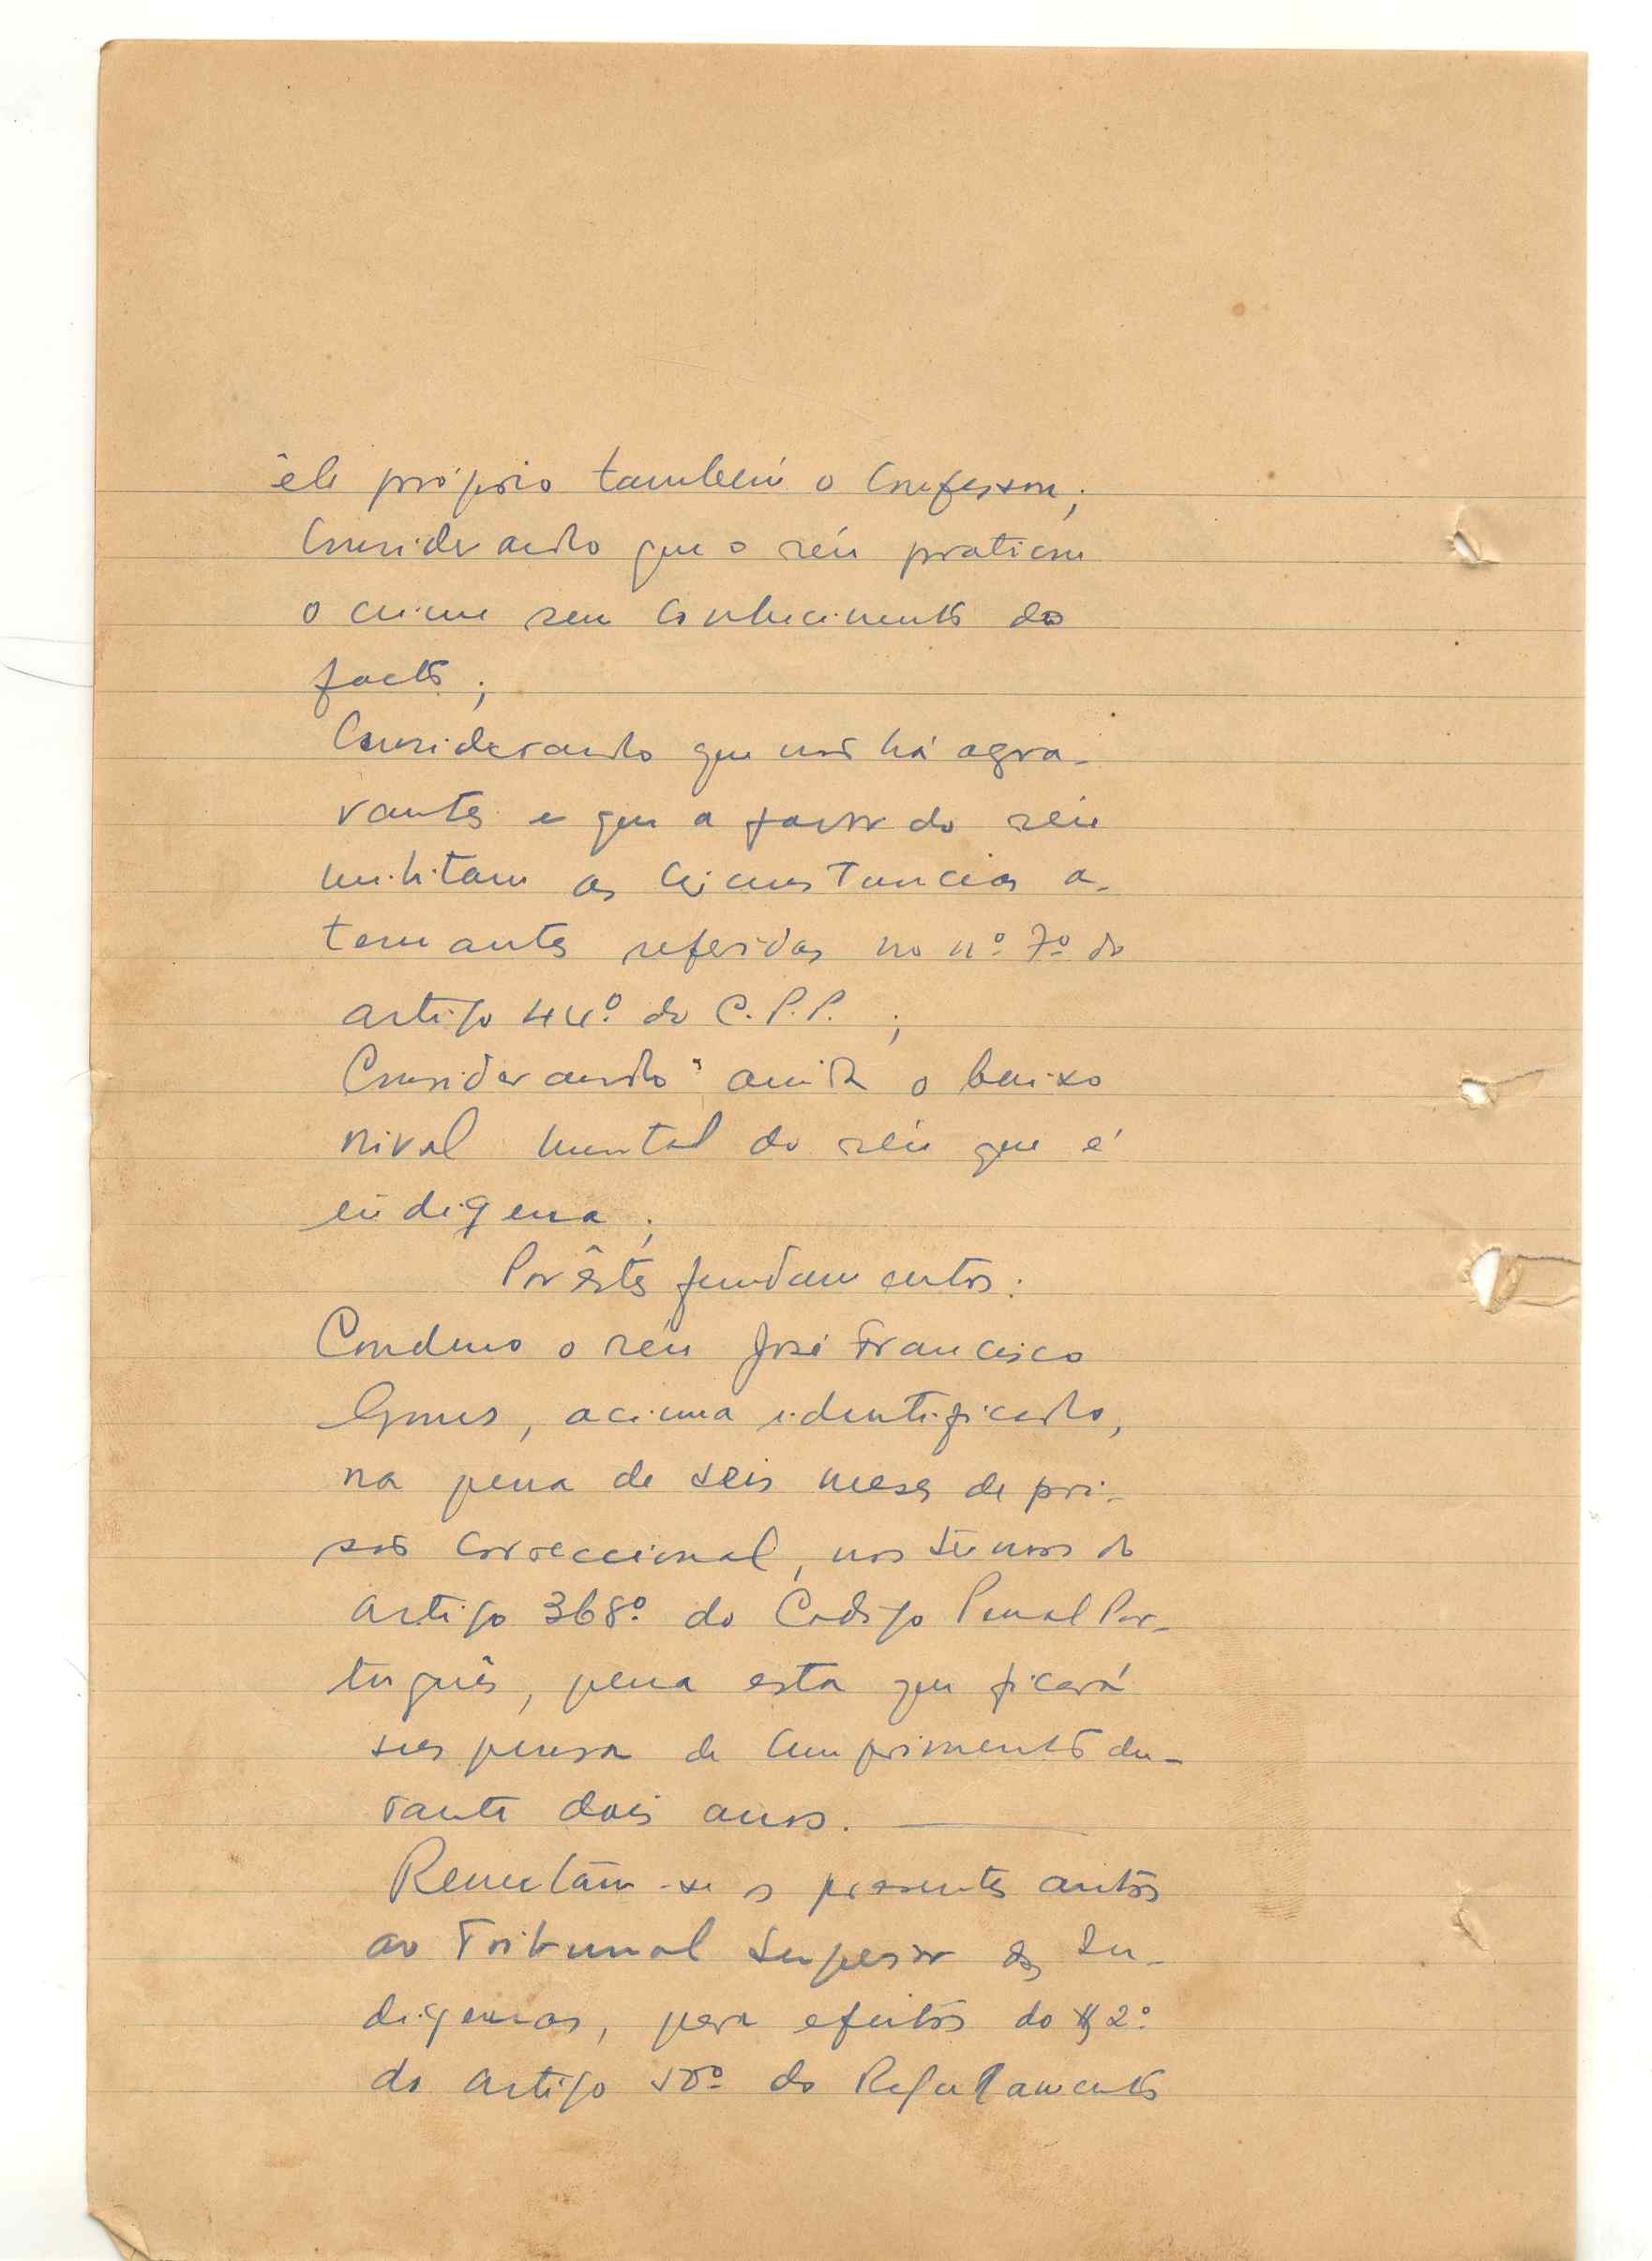 êle próprio também o confessou;
Considerando que o réu praticou
o crime sem conhecimento do
facto;
Considerando que não há agra-
vantes e que a favor do réu
militam as circunstancias a-
tenuantes referidas no nº 7º do
artigo 44º do C.P.P. ;
Considerando ainda o baixo
nivel mental do réu que é
indigena;
Por êstes fundamentos:
Condeno o réu José Francisco
Gomes, acima identificado,
na pena de seis meses de pri-
são correccional, nos termos do
artigo 368º do Codigo Penal Por-
tuguês, pena esta que ficará
suspensa de cumprimento du-
rante dois anos.
Remetam-se os presentes autos
ao Tribunal Superior dos In-
digenas, para efeitos do § 2º
do artigo do Regulamento